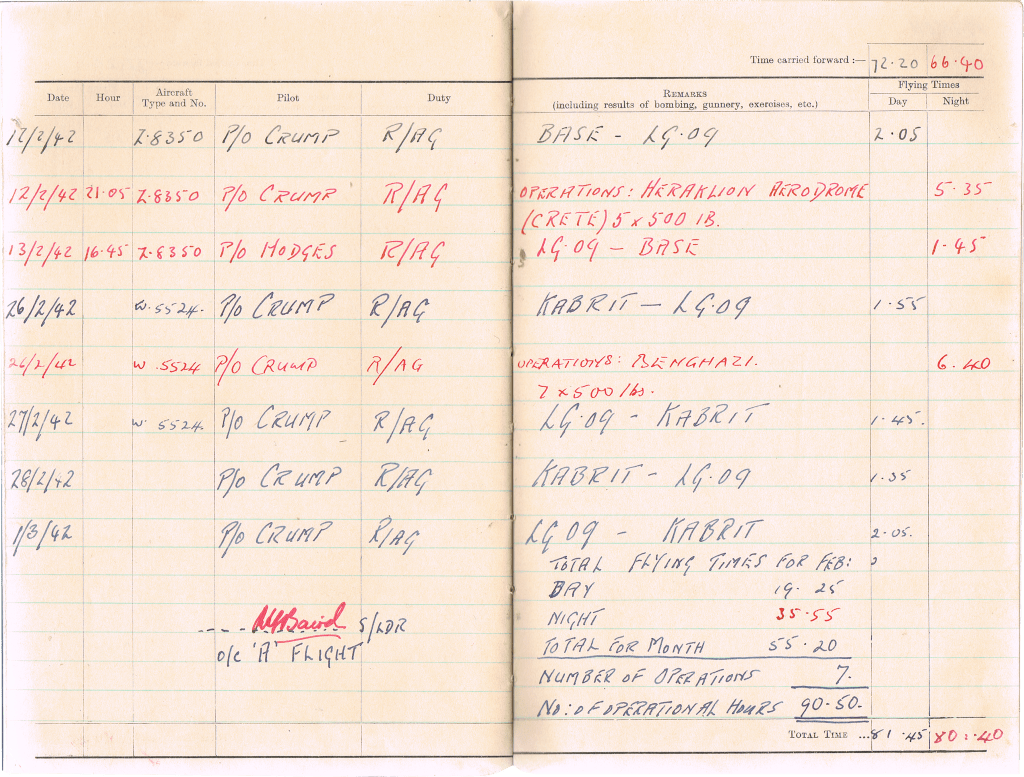 Time carried forward :— 72·20 66·40
Date Hour Aircraft Type and No. Pilot Duty REMARKS (including results of bombing, gunnery, exercises, etc.) Flying Times Day Night
12/2/42 Z·8350 P/O CRUMP R/AG BASE - LG·09 2·05
12/2/42 21·05 Z·8350 P/O CRUMP R/AG OPERATIONS: HERAKLION AERODROME 5·35
(CRETE) 5 x 500 lB.
13/2/42 16·45 Z·8350 P/O HODGES R/AG LG·09 - BASE 1·45
26/2/42 W·5524. P/O CRUMP R/AG KABRIT - LG·09 1·55
26/2/42 W·5524 P/O CRUMP R/AG OPERATIONS: BENGHAZI. 6·40
7 x 500 lbs.
27/2/42 W·5524. P/O CRUMP R/AG LG·09 - KABRIT 1·45.
28/2/42 P/O CRUMP R/AG KABRIT - LG·09 1·35
1/3/42 P/O CRUMP R/AG LG 09 - KABRIT 2·05.
TOTAL FLYING TIMES FOR FEB:
DAY 19·25
NIGHT 35·55
S/LDR
TOTAL FOR MONTH 55·20
O/C 'A' FLIGHT
NUMBER OF OPERATIONS 7.
NO: OF OPERATIONAL HOURS 90·50.
TOTAL TIME ... 81·45 80:·40